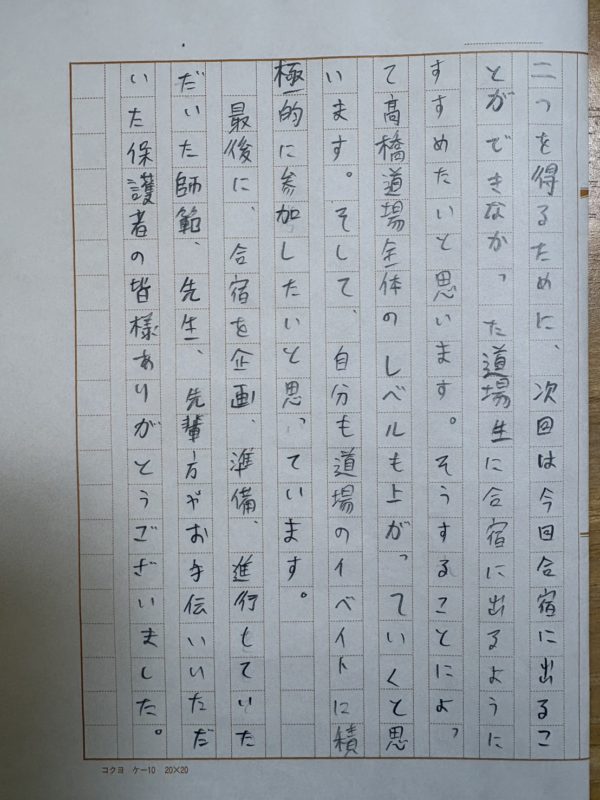 二つを得るために、次回は今回合宿に出るこ
とができなかった道場生に合宿に出るように
すすめたいと思います。そうすることによっ
て高橋道場全体のレベルも上がっていくと思
います。そして、自分も道場のイベイトに積
極的に参加したいと思っています。
最後に、合宿を企画、準備、進行もていた
だいた師範、先生、先輩方やお手伝いいただ
いた保護者の皆様ありがとうございました。
コクヨ ケー10 20×20